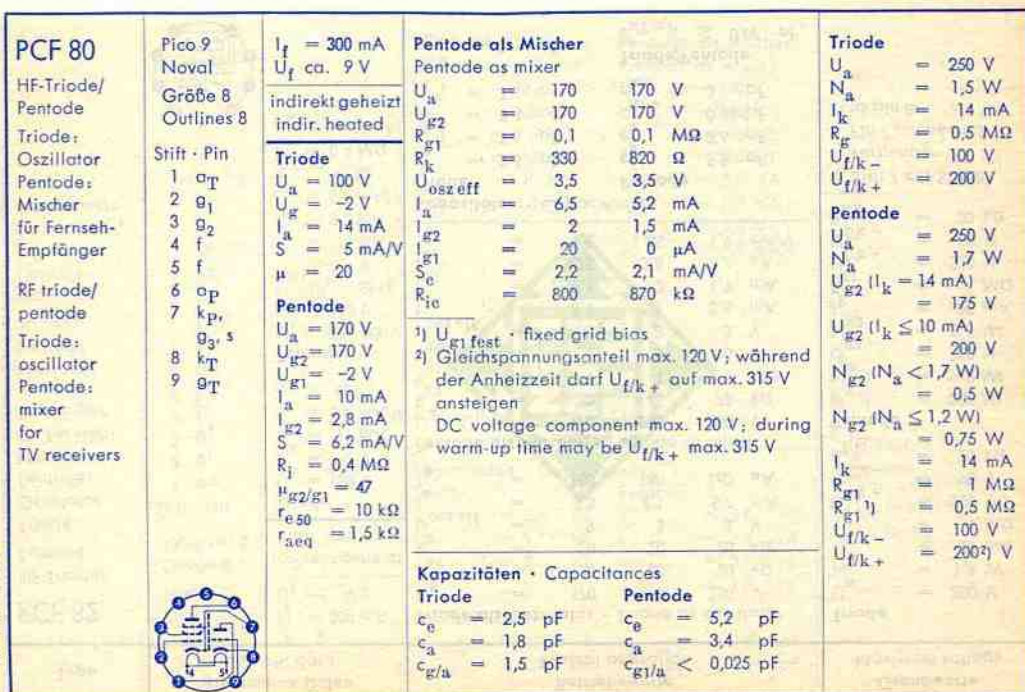 PCF 80
HF-Triode/
Pentode
Triode:
Oszillator
Pentode:
Mischer
für Fernseh-
Empfänger
RF triode/
pentode
Triode:
oscillator
Pentode:
mixer
for
TV receivers
Pico 9
Noval
Größe 8
Outlines 8
Stift · Pin
1 aT
2 g1
3 g2
4 f
5 f
6 aP
7 kP,
g3, s
8 kT
9 gT
If = 300 mA
Uf ca. 9 V
indirekt geheizt
indir. heated
Triode
Ua = 100 V
Ug = –2 V
Ia = 14 mA
S = 5 mA/V
μ = 20
Pentode
Ua = 170 V
Ug2 = 170 V
Ug1 = –2 V
Ia = 10 mA
Ig2 = 2,8 mA
S = 6,2 mA/V
Ri = 0,4 MΩ
μg2/g1 = 47
re50 = 10 kΩ
raeq = 1,5 kΩ
Pentode als Mischer
Pentode as mixer
Ua = 170 170 V
Ug2 = 170 170 V
Rg1 = 0,1 0,1 MΩ
Rk = 330 820 Ω
Uosz eff = 3,5 3,5 V
Ia = 6,5 5,2 mA
Ig2 = 2 1,5 mA
Ig1 = 20 0 μA
Sc = 2,2 2,1 mA/V
Ric = 800 870 kΩ
1) Ug1 fest · fixed grid bias
2) Gleichspannungsanteil max. 120 V; während
der Anheizzeit darf Uf/k + auf max. 315 V
ansteigen
DC voltage component max. 120 V; during
warm-up time may be Uf/k + max. 315 V
Kapazitäten · Capacitances
Triode Pentode
ce = 2,5 pF ce = 5,2 pF
ca = 1,8 pF ca = 3,4 pF
cg/a = 1,5 pF cg1/a < 0,025 pF
Triode
Ua = 250 V
Na = 1,5 W
Ik = 14 mA
Rg = 0,5 MΩ
Uf/k – = 100 V
Uf/k + = 200 V
Pentode
Ua = 250 V
Na = 1,7 W
Ug2 (Ik = 14 mA)
= 175 V
Ug2 (Ik ≤ 10 mA)
= 200 V
Ng2 (Na < 1,7 W)
= 0,5 W
Ng2 (Na ≤ 1,2 W)
= 0,75 W
Ik = 14 mA
Rg1 = 1 MΩ
Rg1 1) = 0,5 MΩ
Uf/k – = 100 V
Uf/k + = 200 2) V
4 5 6
3 7
2 8
1 9